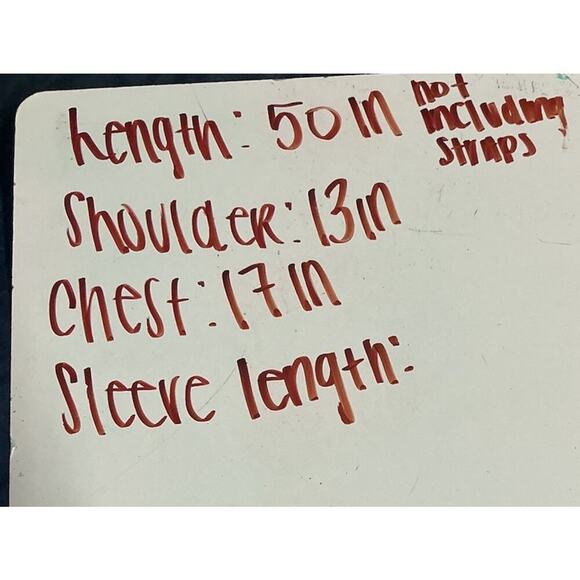 Length: 50 in not including straps
Shoulder: 13 in
Chest: 17 in
Sleeve length: